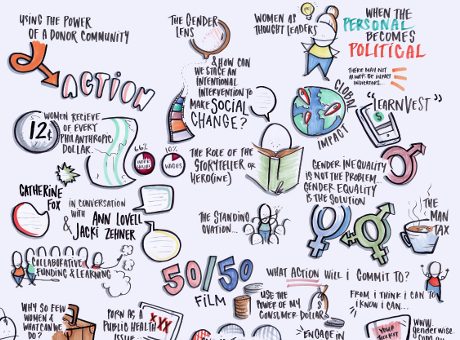 USING THE POWER
OF A DONOR COMMUNITY
ACTION
THE GENDER
LENS
& HOW CAN
WE STAGE AN
INTENTIONAL
INTERVENTION TO
MAKE SOCIAL
CHANGE?
WOMEN AS
THOUGHT LEADERS
WHEN THE
PERSONAL
BECOMES
POLITICAL
THERE MAY NOT
ALWAYS BE
GLOBAL
IMPACT
"LEARNVEST"
$
12¢
WOMEN RECIEVE
OF EVERY
PHILANTHROPIC
DOLLAR.
66%
10%
WAGES
THE ROLE OF THE
STORYTELLER OR
HERO(INE)
GENDER INEQUALITY
IS NOT THE PROBLEM.
GENDER EQUALITY
IS THE SOLUTION
CATHERINE
FOX
IN CONVERSATION
WITH
ANN LOVELL
& JACKI ZEHNER
THE STANDING
OVATION...
THE
MAN
TAX
COLLABORATIVE
FUNDING & LEARNING
50/50
FILM
WHAT ACTION WILL I COMMIT TO?
USE THE
POWER OF MY
CONSUMER DOLLAR
FROM I THINK I CAN TO
I KNOW I CAN...
WHY SO FEW
WOMEN &
WHAT CAN WE
DO?
PORN AS A
PUBLIC HEALTH
ISSUE
XXX
ENGAGE IN
YOUR
TOOLKIT
WWW.
GENDERWISE.